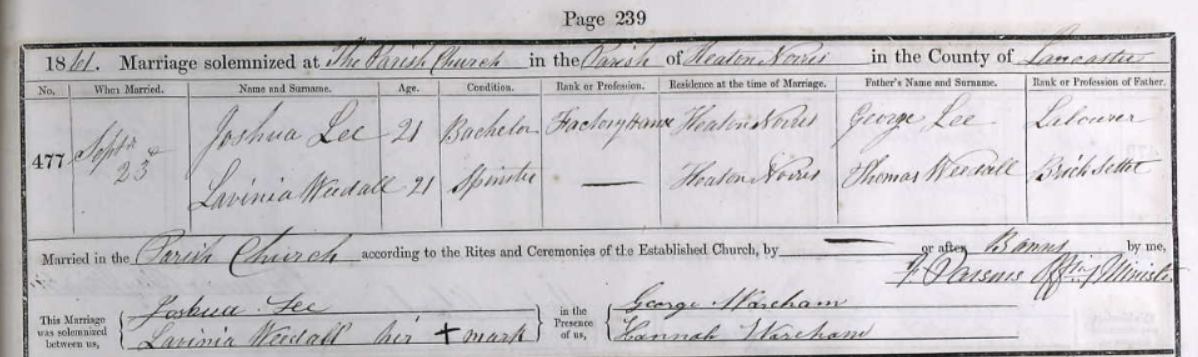 Page 239
1861. Marriage solemnized at The Parish Church in the Parish of Heaton Norris in the County of Lancaster
No. When Married. Name and Surname. Age. Condition. Rank or Profession. Residence at the time of Marriage. Father's Name and Surname. Rank or Profession of Father.
477 Septr 23d Joshua Lee 21 Bachelor Factory Hand Heaton Norris George Lee Labourer
Lavinia Weedall 21 Spinster — Heaton Norris Thomas Weedall Brick setter
Married in the Parish Church according to the Rites and Ceremonies of the Established Church, by — or after Banns by me,
Parsons Minister
This Marriage was solemnized between us, Joshua Lee in the Presence of us, George Wareham
Lavinia Weedall her + mark Hannah Wareham